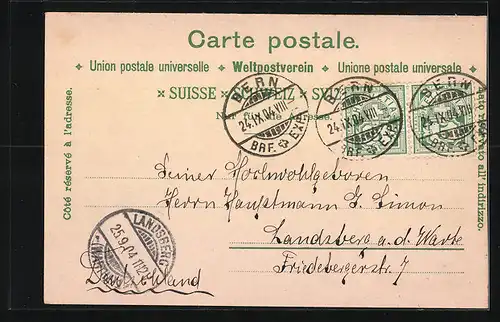 Carte postale.
✦ Union postale universelle ✦ Weltpostverein ✦ Unione postale universale ✦
× SUISSE
Nur für die Adresse.
Côté réservé à l'adresse.
Lato riservato all' indirizzo.
BERN
24.IX.04.VIII
BRF. EXP.
BERN
24.IX.04.VIII
BRF. EXP.
BERN
24.IX.04.VIII
BRF. EXP.
Seiner Hochwohlgeboren
Herrn Hauptmann L. Simon
Landsberg a. d. Warte
Friedebergerstr. 7
LANDSBERG
25.9.04
(WARTHE)